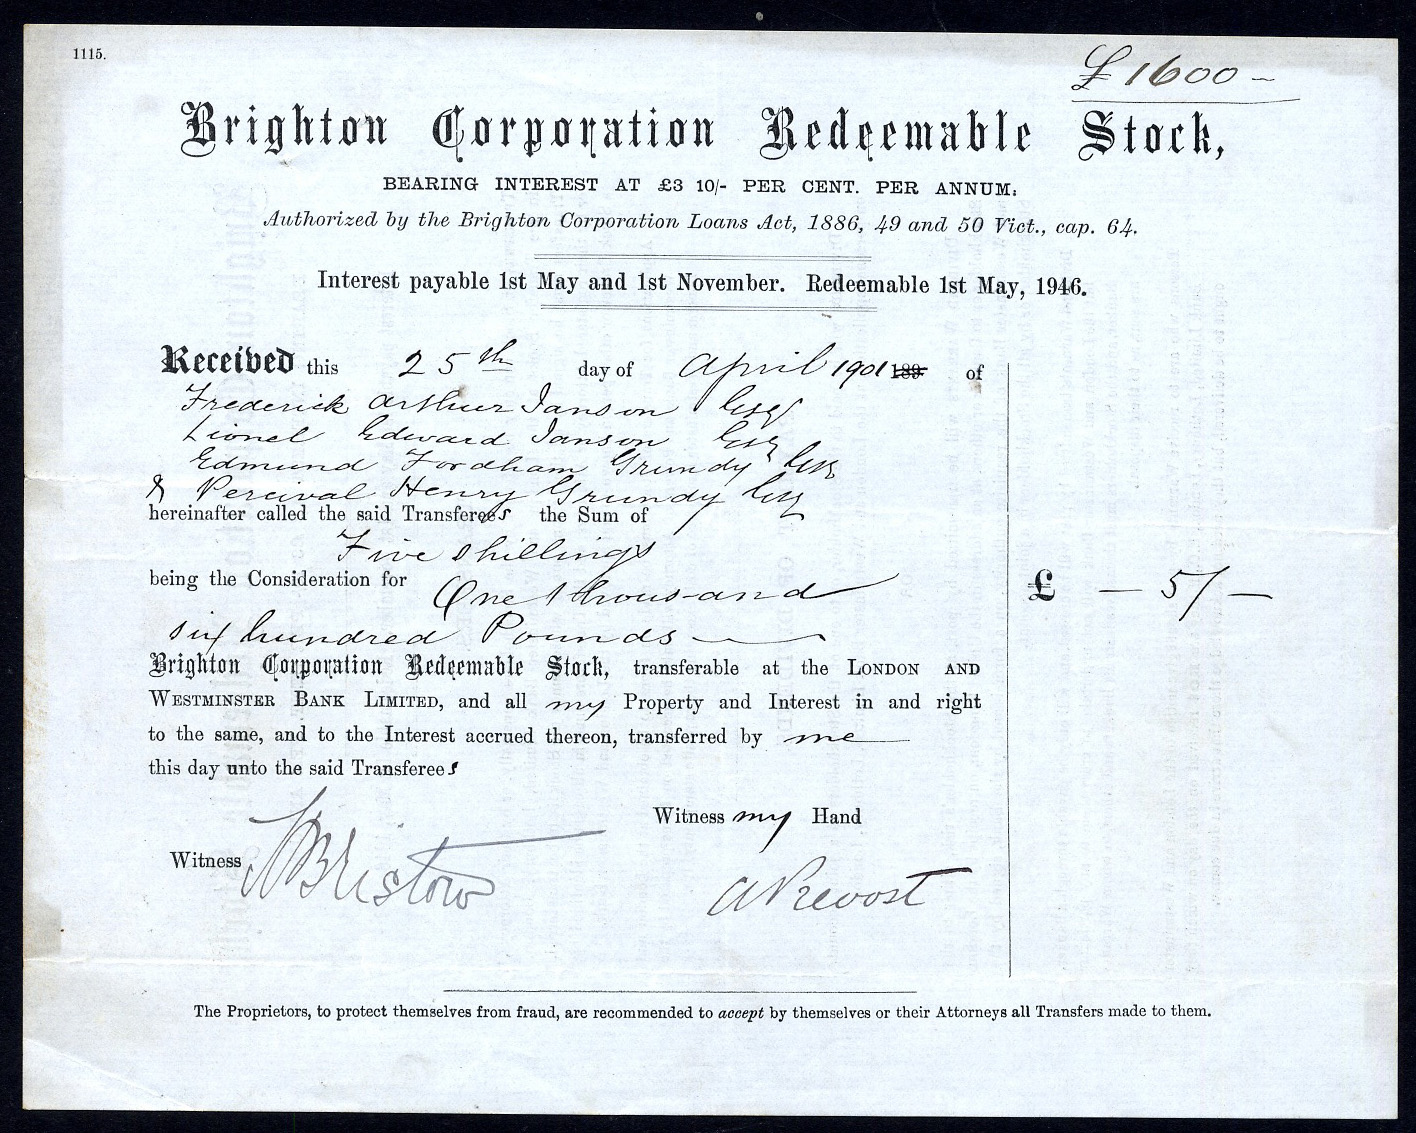 1115.
£1600-
Brighton Corporation Redeemable Stock,
BEARING INTEREST AT £3 10/- PER CENT. PER ANNUM:
Authorized by the Brighton Corporation Loans Act, 1886, 49 and 50 Vict., cap. 64.
Interest payable 1st May and 1st November. Redeemable 1st May, 1946.
Received this 25th day of April 1901 189 of
Frederick Arthur Janson Esq
Lionel Edward Janson Esq
Edmund Fordham Grundy Esq
& Percival Henry Grundy Esq
hereinafter called the said Transferees the Sum of
Five shillings
being the Consideration for One thousand
£ — 5/ —
six hundred Pounds —
Brighton Corporation Redeemable Stock, transferable at the LONDON AND
WESTMINSTER BANK LIMITED, and all my Property and Interest in and right
to the same, and to the Interest accrued thereon, transferred by me
this day unto the said Transferees
Witness my Hand
Witness Bristow
A Prevost
The Proprietors, to protect themselves from fraud, are recommended to accept by themselves or their Attorneys all Transfers made to them.